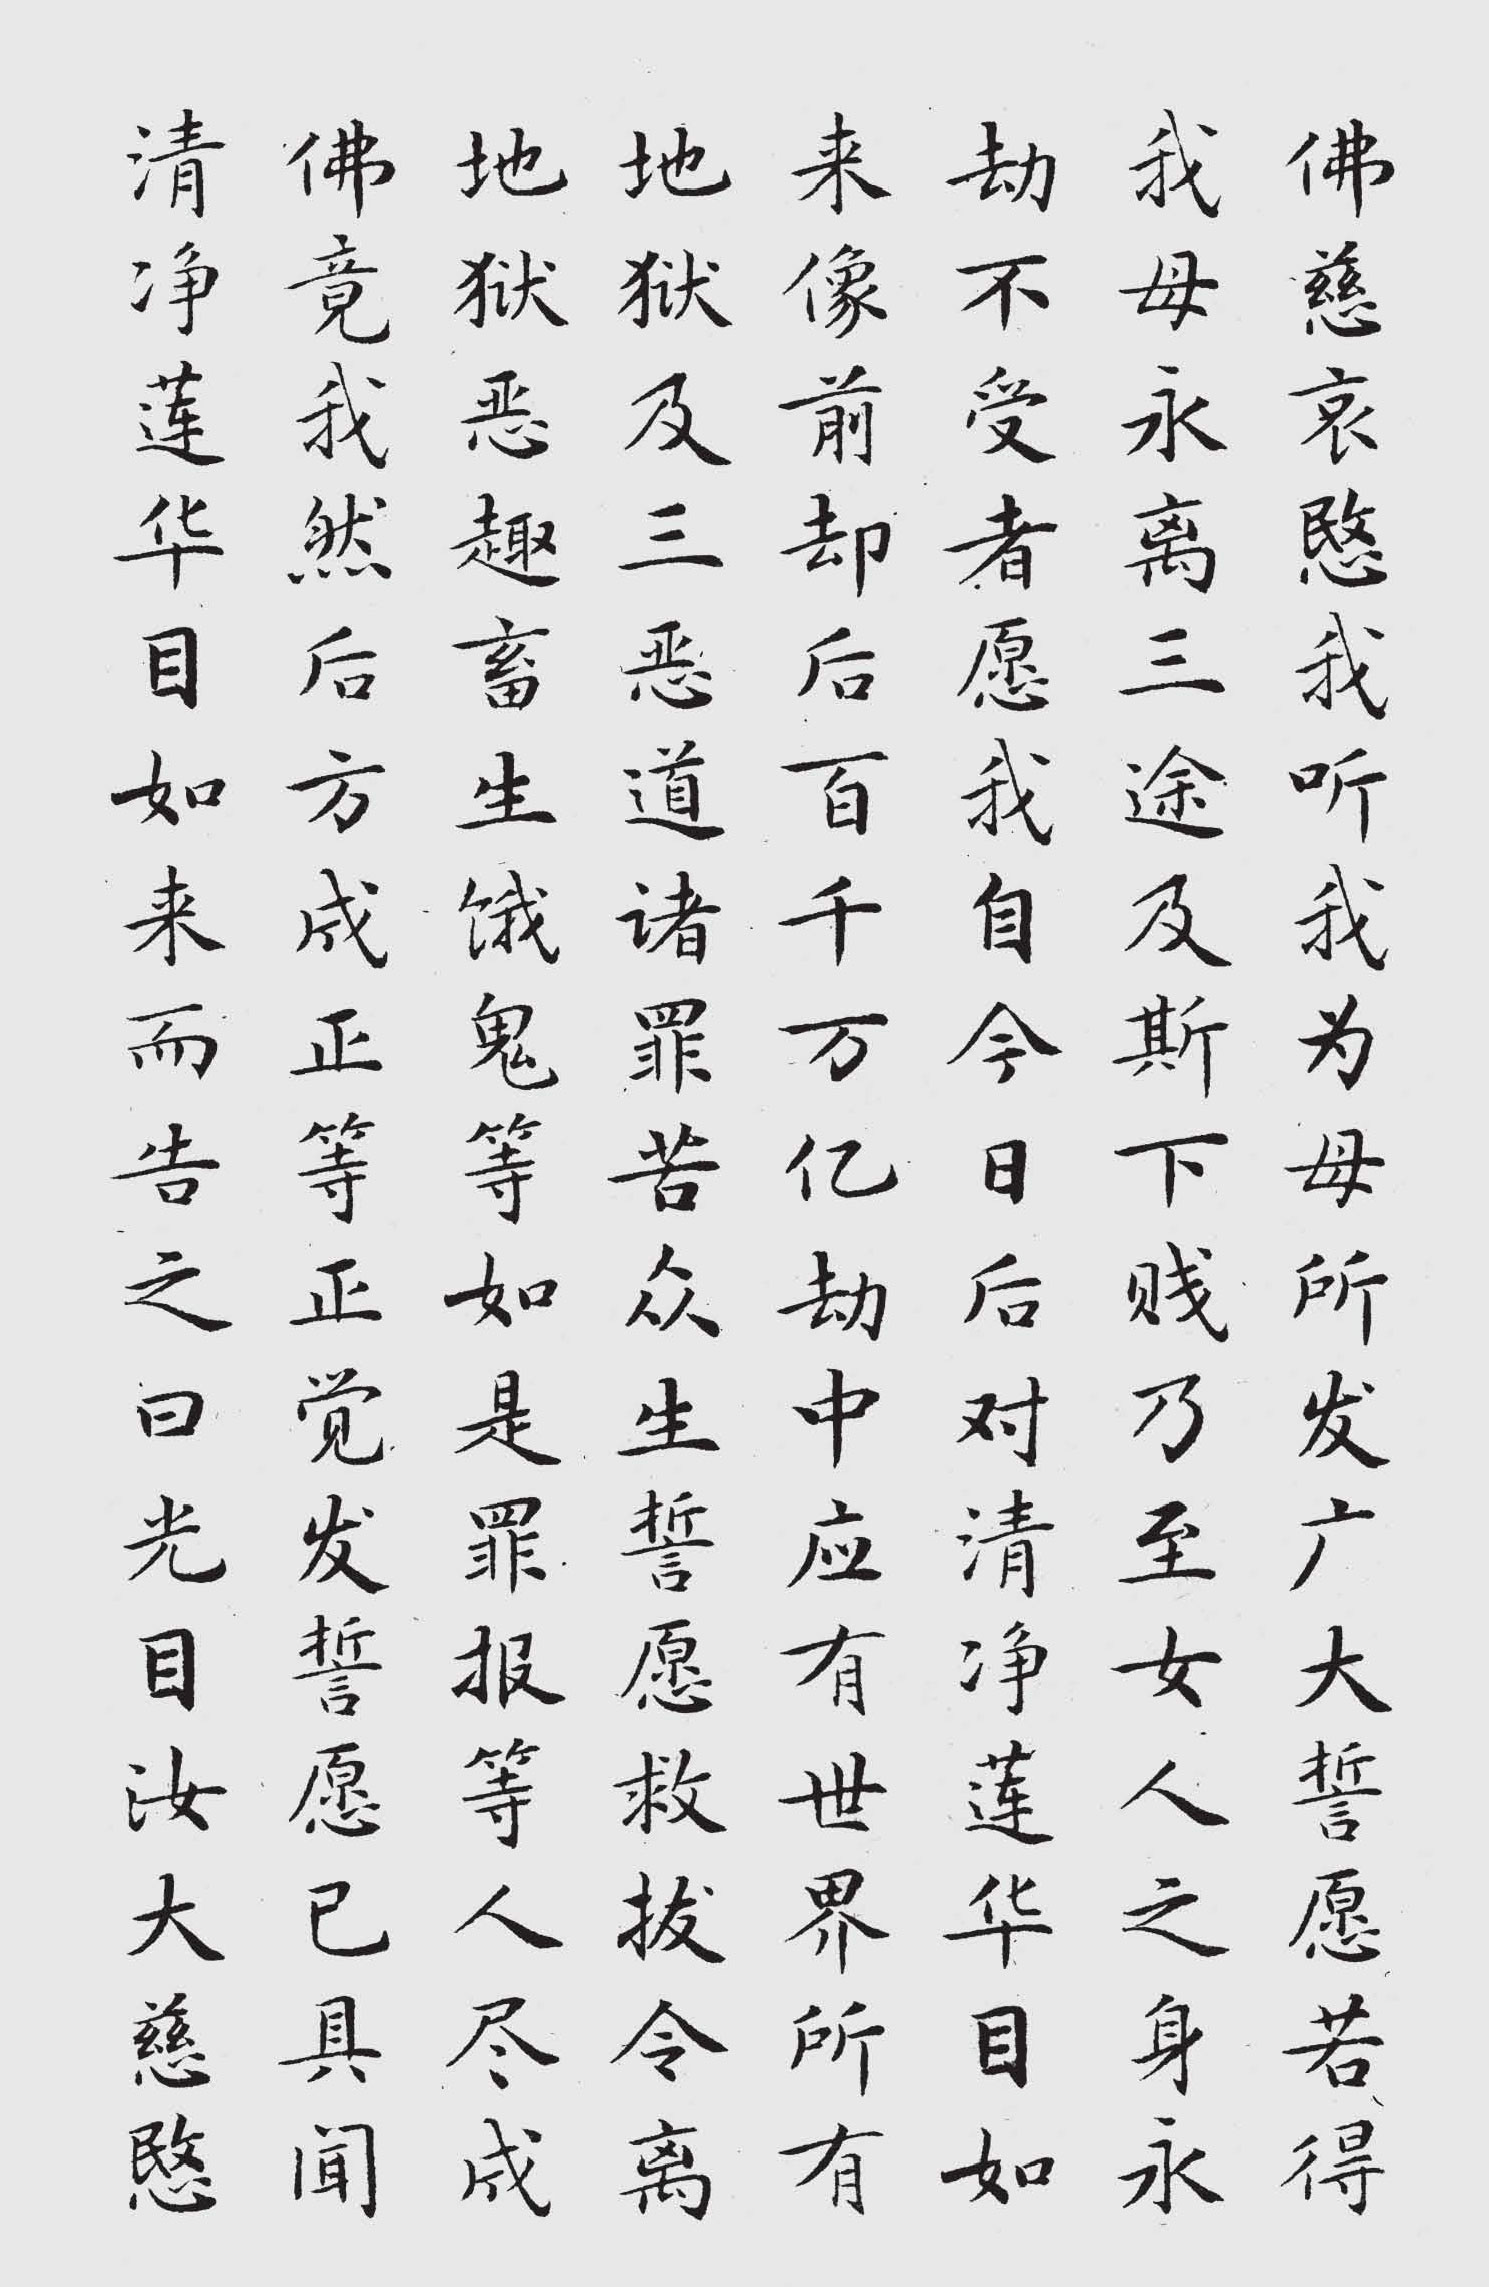 佛慈哀愍我听我为母所发广大誓愿若得
我母永离三途及斯下贱乃至女人之身永
劫不受者愿我自今日后对清净莲华目如
来像前却后百千万亿劫中应有世界所有
地狱及三恶道诸罪苦众生誓愿救拔令离
地狱恶趣畜生饿鬼等如是罪报等人尽成
佛竟我然后方成正等正觉发誓愿已具闻
清净莲华目如来而告之曰光目汝大慈愍